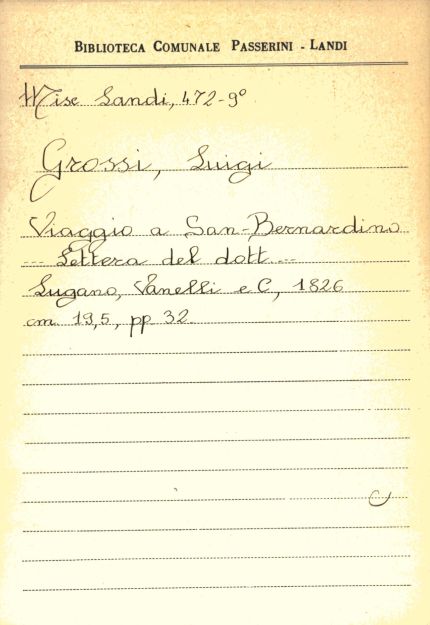 BIBLIOTECA COMUNALE PASSERINI - LANDI
Misc Landi, 472-9°
Grossi, Luigi
Viaggio a San-Bernardino
--- Lettera del dott ---
Lugano, Vanelli e C, 1826
cm 19,5, pp 32